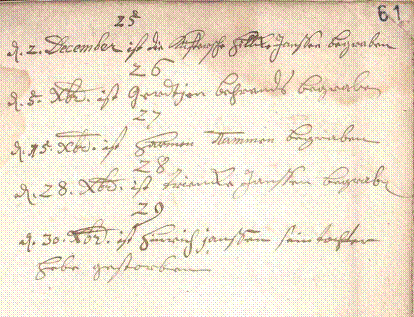 61
25
d. 2. December ist die Küstersche Hilke Janssen begraben
26
d. 5. Xbr. ist Gerdtjen behrends begraben
27
d. 15. Xbr. ist Harmen Mammen begraben
28
d. 28. Xbr. ist trienke Janssen begrab
29
d. 30. Xbr. ist Hinrich janssen sein tochter
hebe gestorben